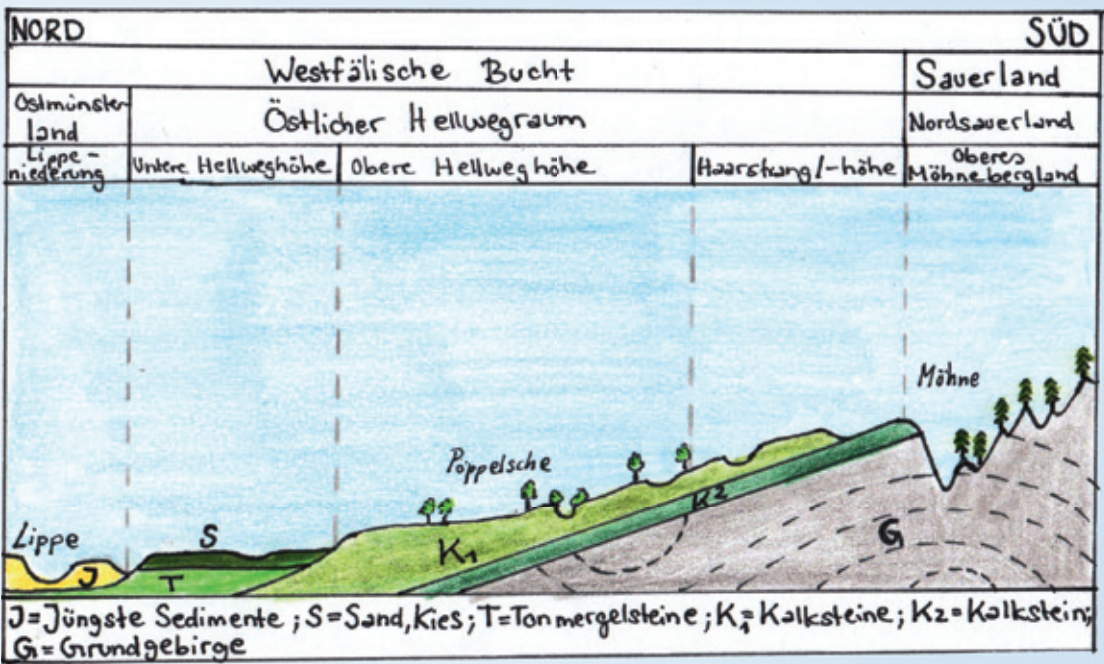 NORD SÜD
Westfälische Bucht Sauerland
Ostmünster-
land
Östlicher Hellwegraum
Nordsauerland
Lippe-
niederung
Untere Hellweghöhe
Obere Hellweghöhe
Haarstrang/-höhe
Oberes
Möhnebergland
Möhne
Pöppelsche
Lippe
S
J
T
K1
K2
G
J=Jüngste Sedimente; S=Sand, Kies; T=Tonmergelsteine; K1=Kalksteine; K2=Kalkstein;
G=Grundgebirge